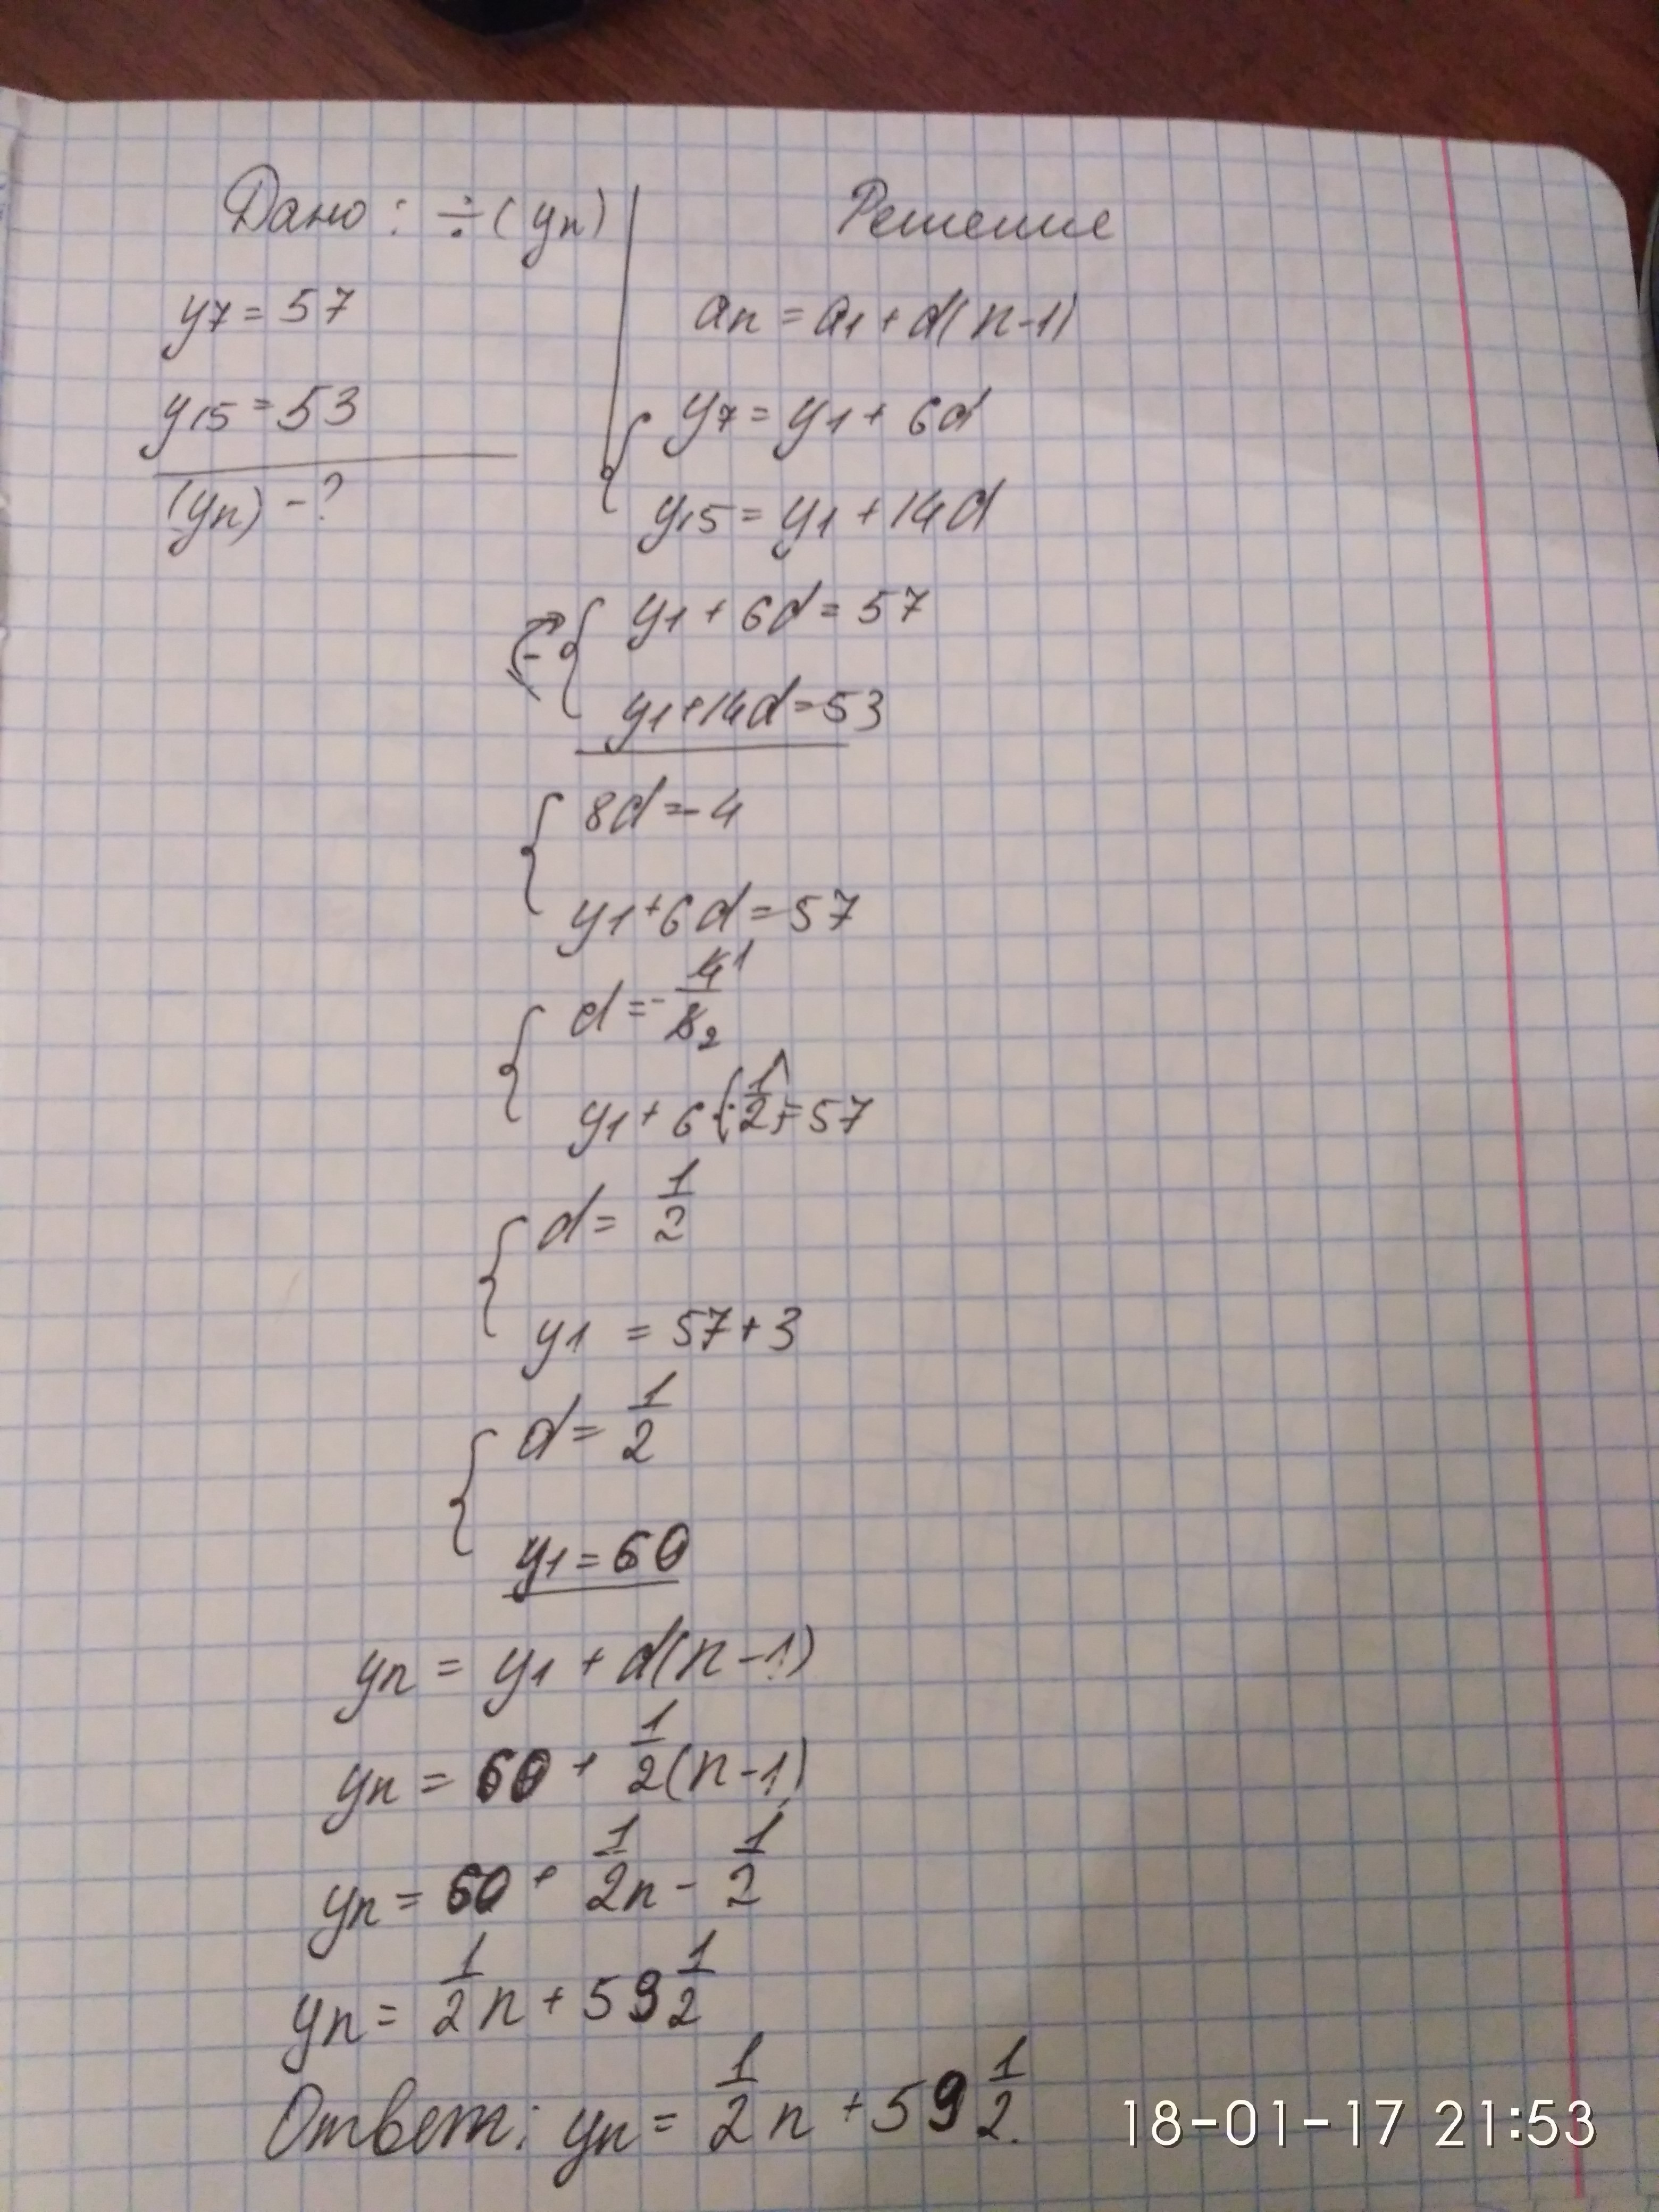 Дано: ÷(yn)
y7 = 57
y15 = 53
(yn) - ?
Решение
an = a1 + d(n-1)
y7 = y1 + 6d
y15 = y1 + 14d
y1 + 6d = 57
-
y1 + 14d = 53
8d = -4
y1 + 6d = 57
d = - 4 1 / 8 2
y1 + 6(-1/2) = 57
d = 1/2
y1 = 57 + 3
d = 1/2
y1 = 60
yn = y1 + d(n-1)
yn = 60 + 1/2(n-1)
yn = 60 + 1/2n - 1/2
yn = 1/2 n + 59 1/2
Ответ: yn = 1/2 n + 59 1/2.
18-01-17 21:53